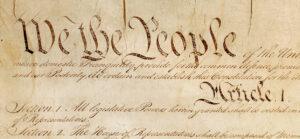 We the People of the
insure domestic Tranquility, provide for the common defence,
and our Posterity, do ordain and establish this Constitution for the
Article. I.
Section. 1. All legislative Powers herein granted shall be vested
of Representatives.
Section. 2. The House of Representatives shall be composed of